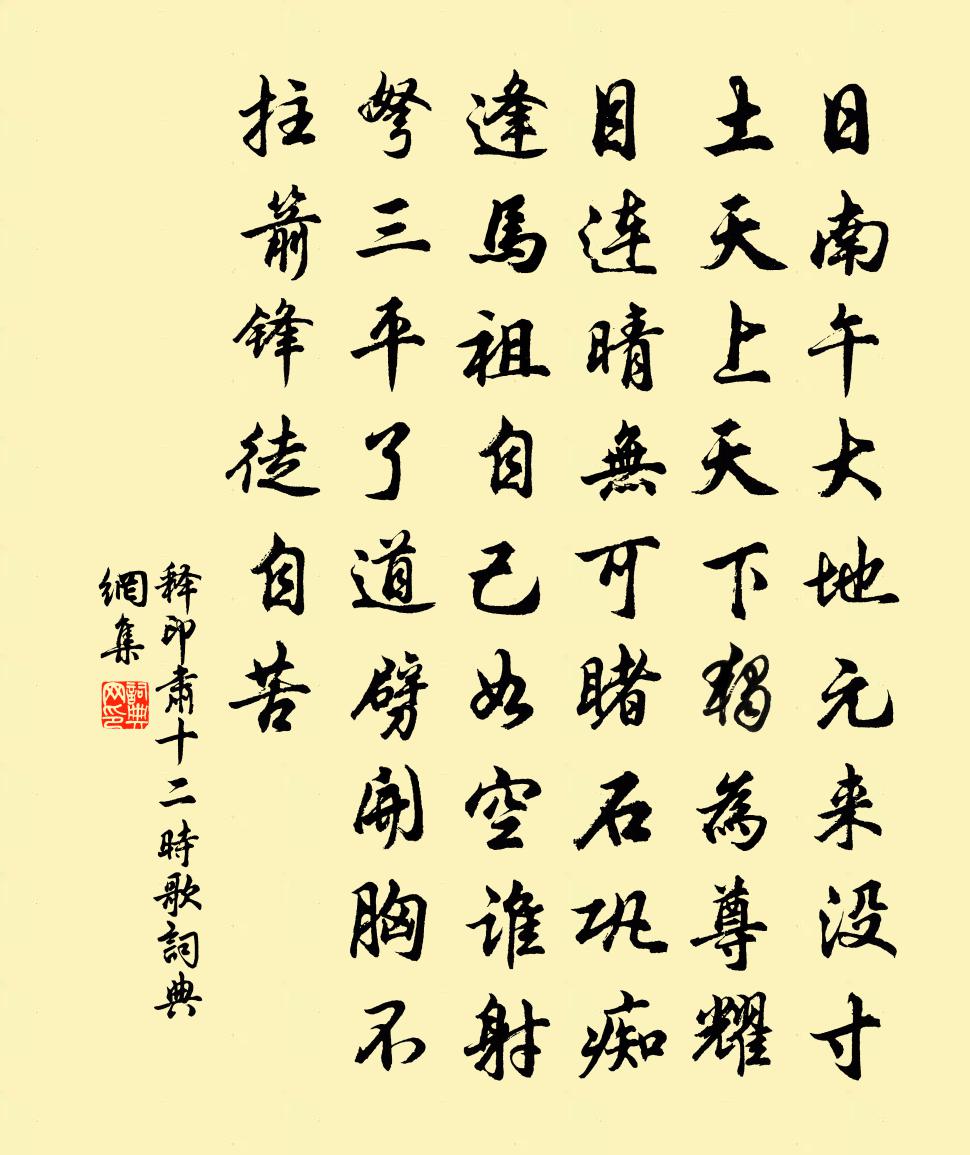 日南午大地元来没寸
土天上天下独為尊耀
目連晴無可睹石巩痴
逢馬祖自己如空谁射
弩三平了道劈開胸不
拄箭锋徒自苦
释印肃十二時歌詞典
網集
詞典网印